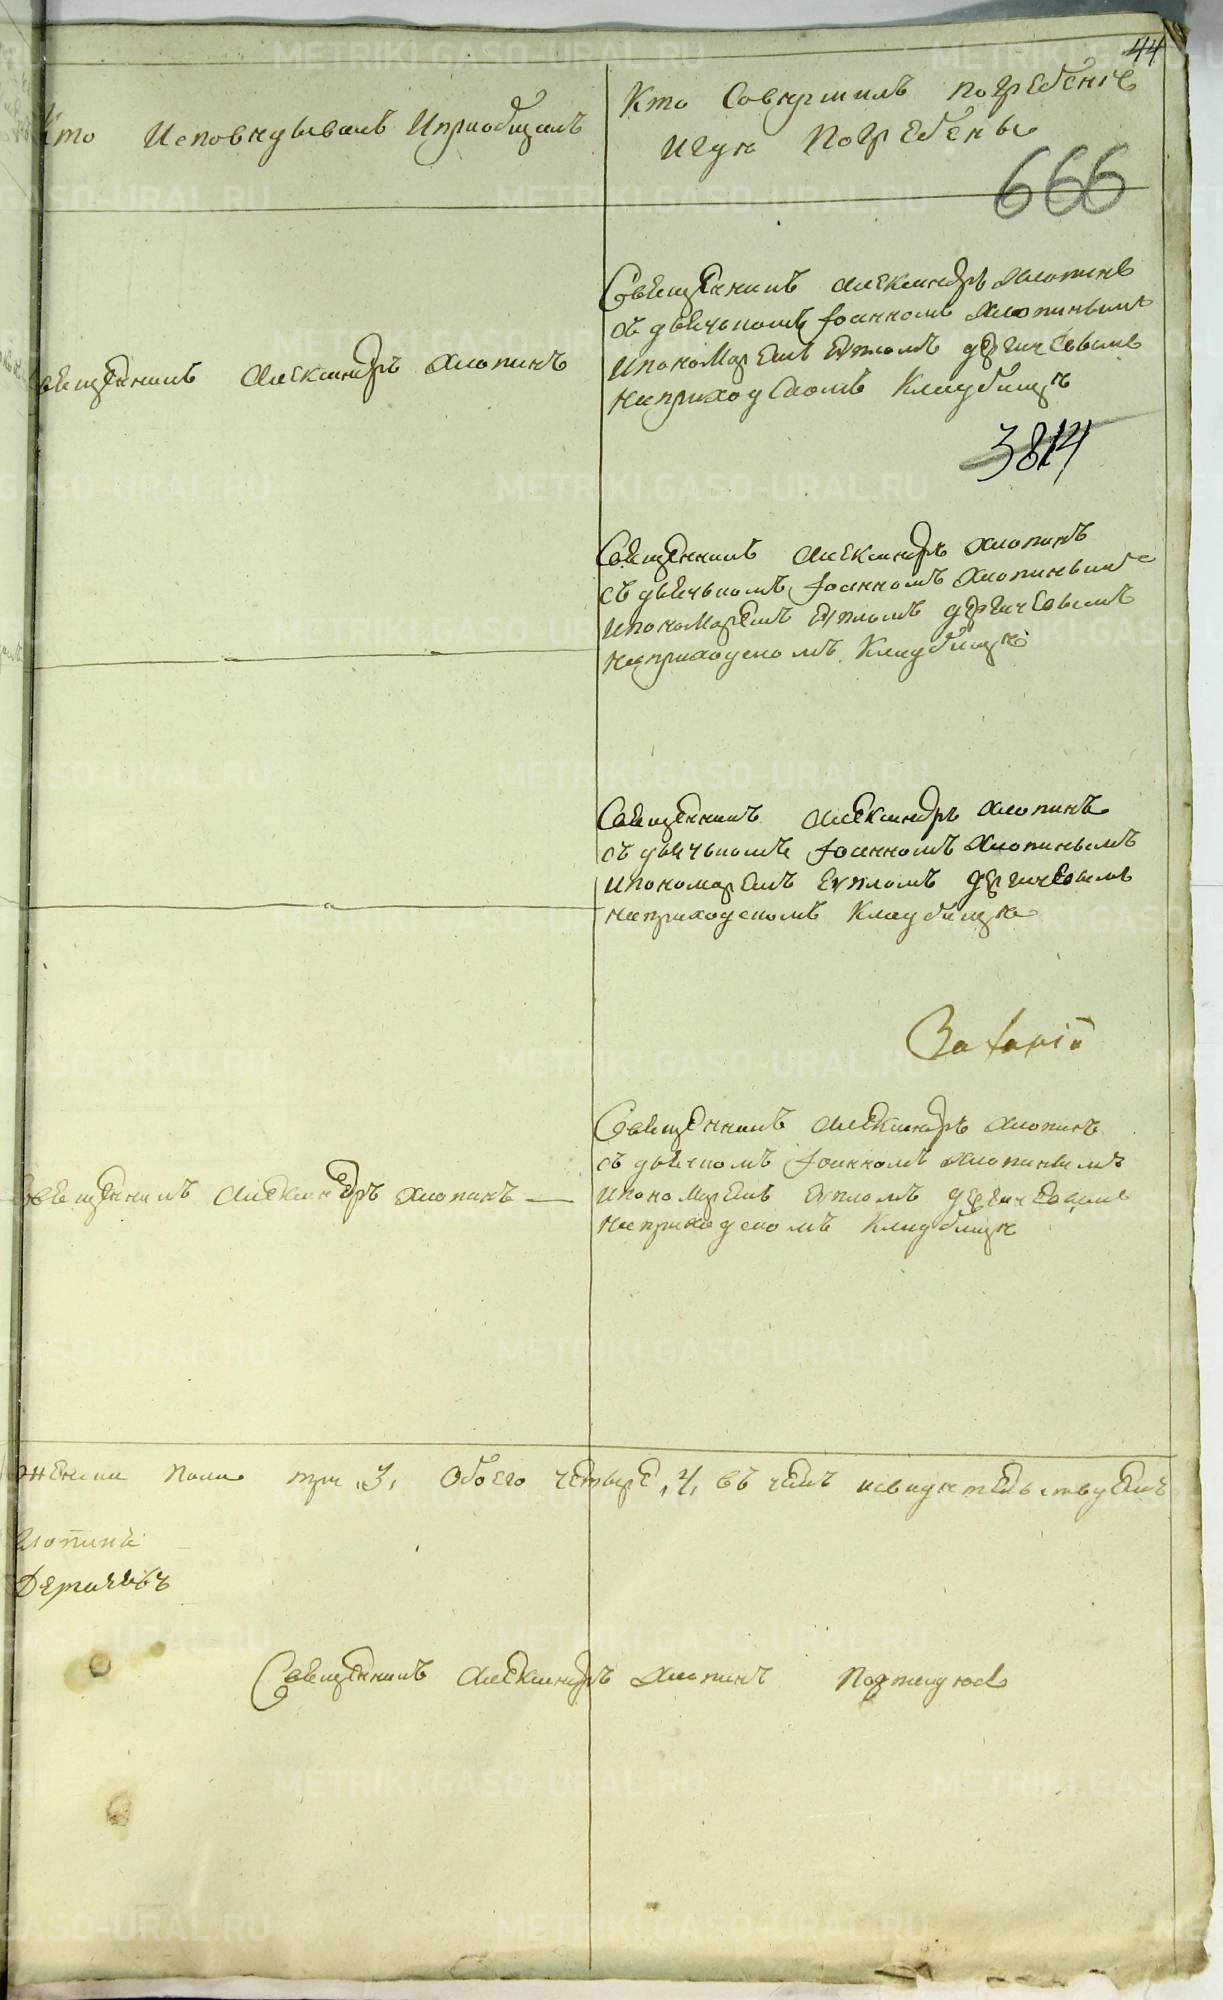 44
Кто Исповѣдывалъ Иприобщалъ
Кто Совершилъ погребенїе
Игдѣ Погребены
666
Священникъ Александръ Хлопинъ
Священникъ Александръ Хлопинъ
съ дьячькомъ Іоанномъ Хлопинымъ
Ипономаремъ Еѵпломъ Дергичевымъ
Наприходскомъ Кладбищѣ
3814
Священникъ Александръ Хлопинъ
съ дьячькомъ Іоанномъ Хлопинымъ
Ипономаремъ Еѵпломъ Дергичевымъ
Наприходскомъ Кладбищѣ
Священникъ Александръ Хлопинъ
съ дьячькомъ Іоанномъ Хлопинымъ
Ипономаремъ Еѵпломъ Дергичевымъ
Наприходскомъ Кладбищѣ
Священникъ Александръ Хлопинъ
Священникъ Александръ Хлопинъ
съ дьячкомъ Іоанномъ Хлопинымъ
Ипономаремъ Еѵпломъ Дергичевымъ
Наприходскомъ Кладбищѣ
женска пола три ,3, Обоего четыре ,4, въ чемъ исвидѣтельствуемъ
Хлопинъ
Священникъ Александръ Хлопинъ
METRIKI.GASO-URAL.RU